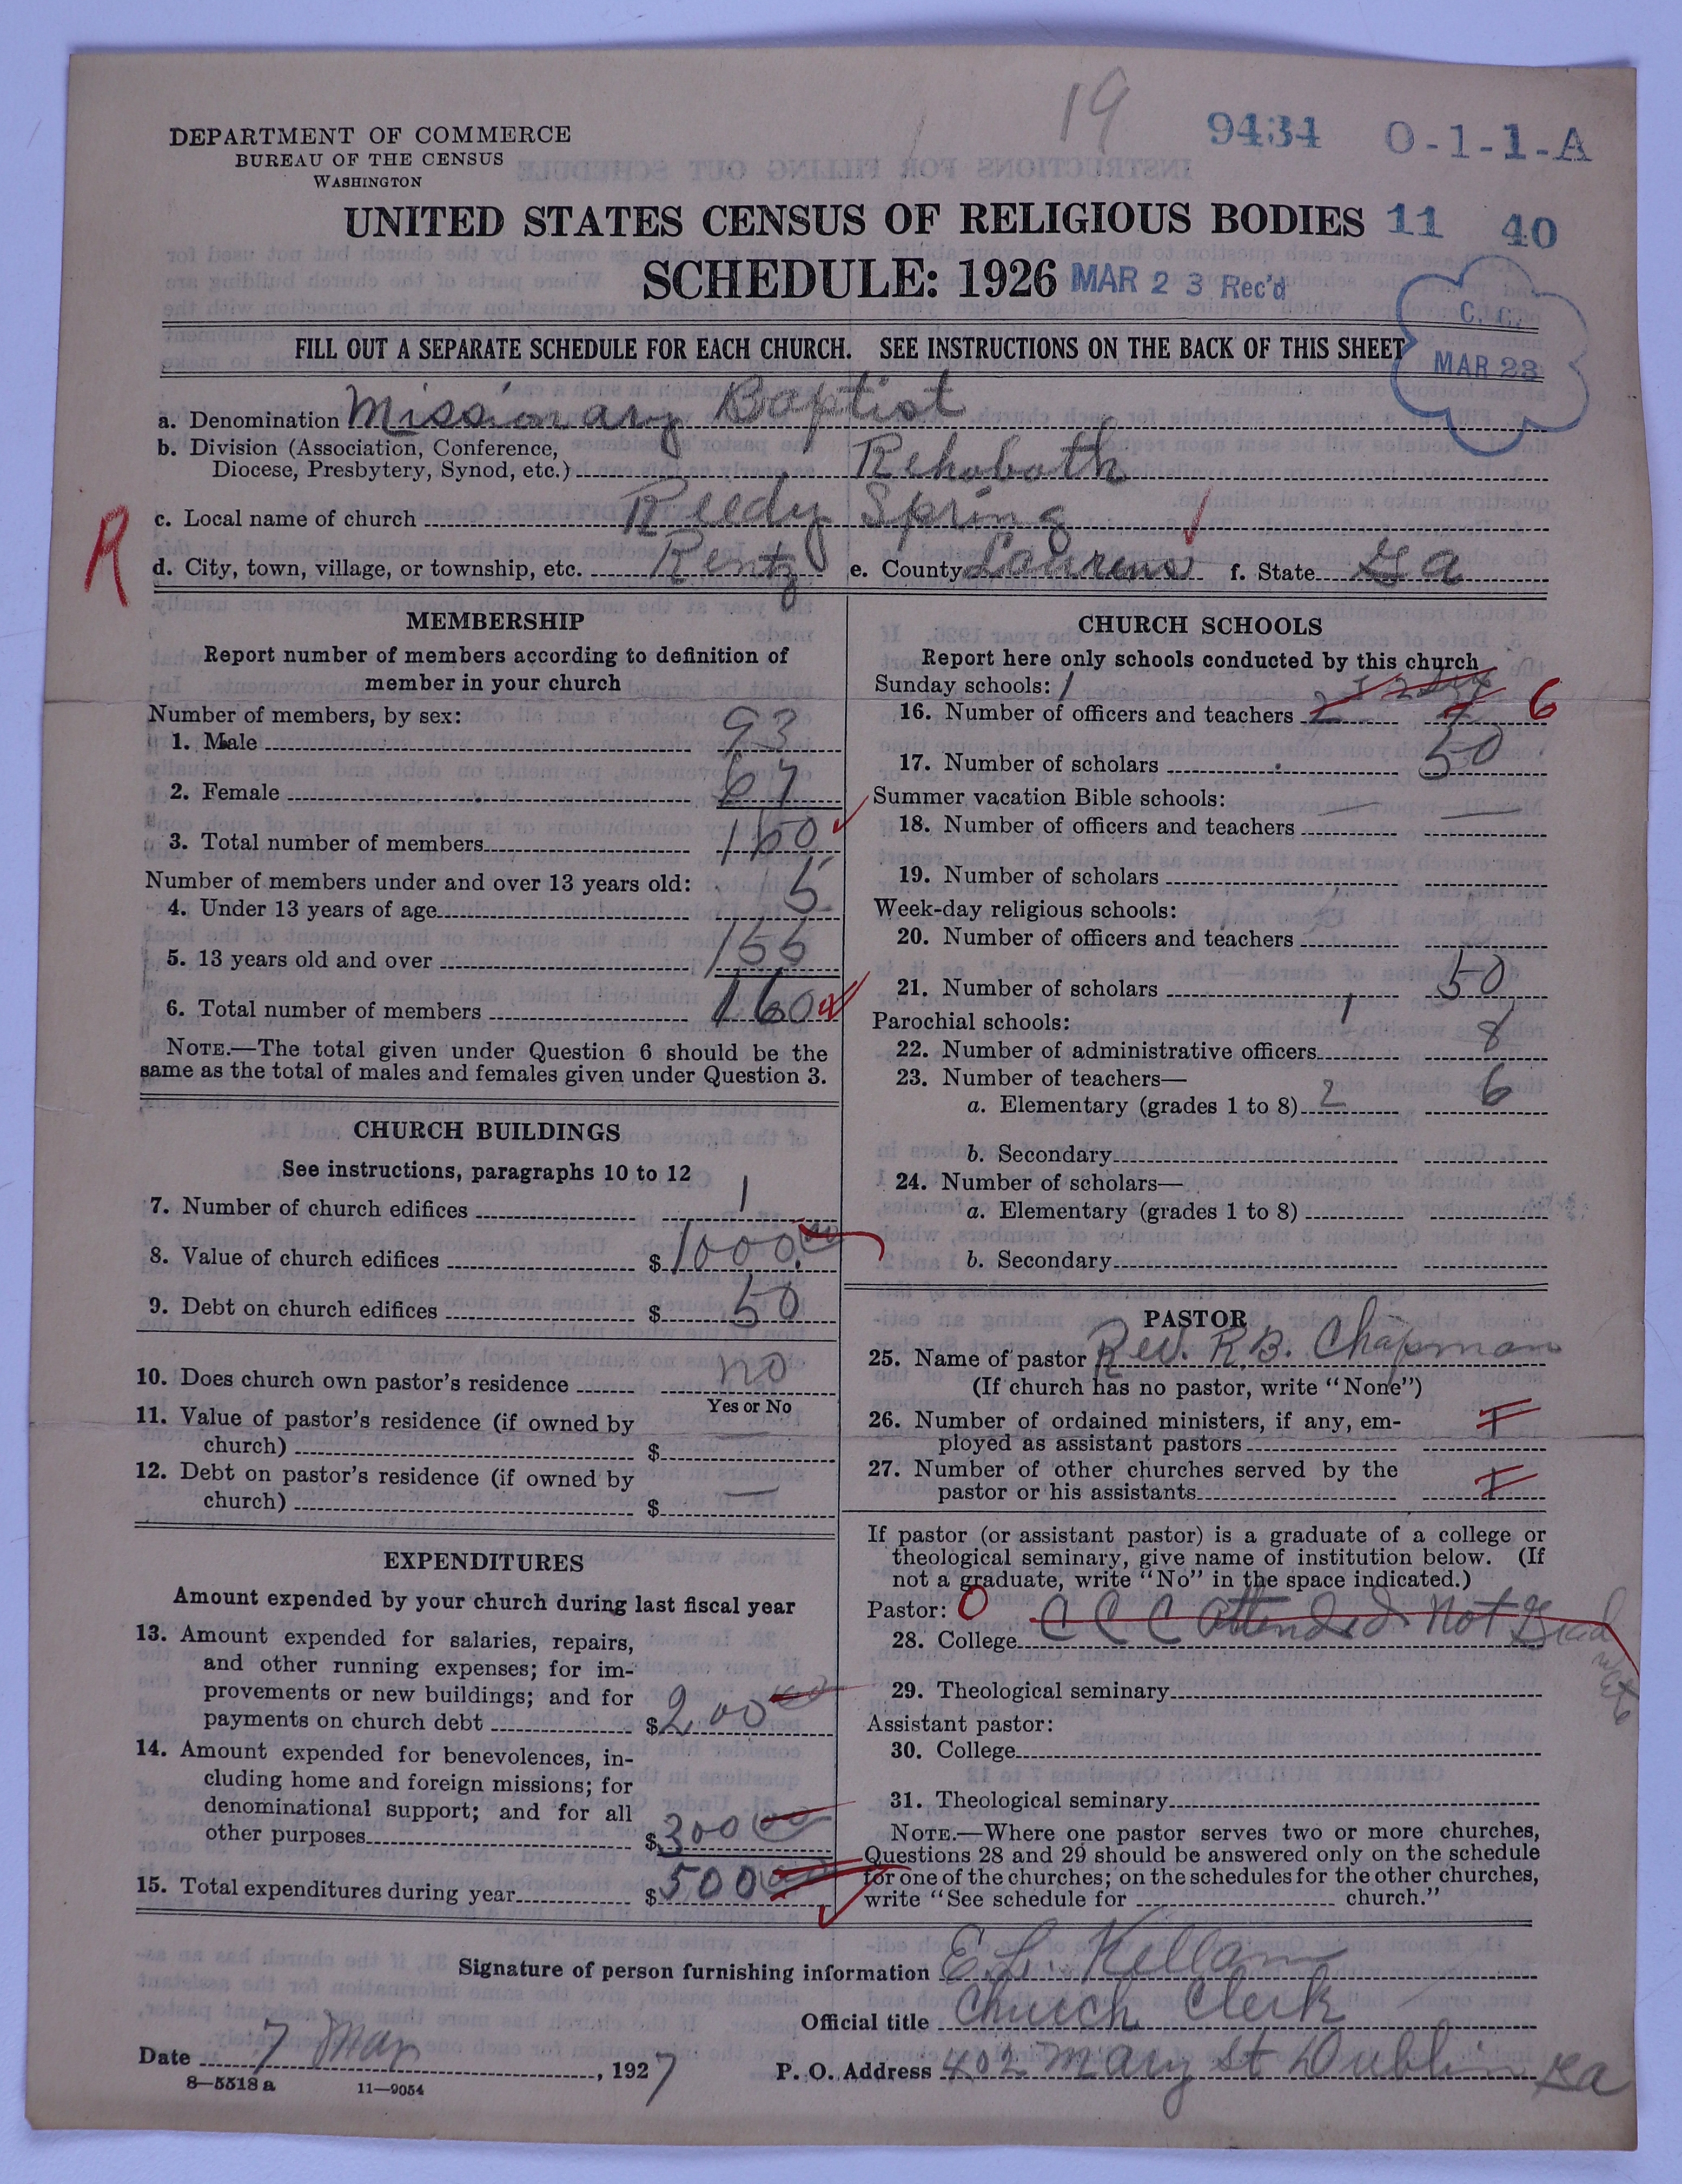 19
9434 0-1-1-A
DEPARTMENT OF COMMERCE
BUREAU OF THE CENSUS
WASHINGTON
UNITED STATES CENSUS OF RELIGIOUS BODIES 11 40
SCHEDULE: 1926 MAR 23 Rec'd
C. C.
MAR 23
FILL OUT A SEPARATE SCHEDULE FOR EACH CHURCH. SEE INSTRUCTIONS ON THE BACK OF THIS SHEET
a. Denomination Missionary Baptist
b. Division (Association, Conference,
Diocese, Presbytery, Synod, etc.) Rehobath
R
c. Local name of church Reedy Spring
d. City, town, village, or township, etc. Rentz e. County Laurens f. State Ga
MEMBERSHIP
Report number of members according to definition of
member in your church
Number of members, by sex:
1. Male 93
2. Female 67
3. Total number of members 160
Number of members under and over 13 years old:
4. Under 13 years of age 5
5. 13 years old and over 155
6. Total number of members 160
NOTE.—The total given under Question 6 should be the
same as the total of males and females given under Question 3.
CHURCH BUILDINGS
See instructions, paragraphs 10 to 12
7. Number of church edifices 1
8. Value of church edifices $1000.00
9. Debt on church edifices $ 50
10. Does church own pastor's residence no
Yes or No
11. Value of pastor's residence (if owned by
church) $ —
12. Debt on pastor's residence (if owned by
church) $ —
EXPENDITURES
Amount expended by your church during last fiscal year
13. Amount expended for salaries, repairs,
and other running expenses; for im-
provements or new buildings; and for
payments on church debt $200 00
14. Amount expended for benevolences, in-
cluding home and foreign missions; for
denominational support; and for all
other purposes $300 00
15. Total expenditures during year $500 00
CHURCH SCHOOLS
Report here only schools conducted by this church
Sunday schools: 1
16. Number of officers and teachers 2 6
17. Number of scholars 50
Summer vacation Bible schools:
18. Number of officers and teachers
19. Number of scholars
Week-day religious schools:
20. Number of officers and teachers
21. Number of scholars 50
Parochial schools: 1
22. Number of administrative officers 8
23. Number of teachers—
a. Elementary (grades 1 to 8) 2 6
b. Secondary
24. Number of scholars—
a. Elementary (grades 1 to 8)
b. Secondary
PASTOR
25. Name of pastor Rev. R.B. Chapman
(If church has no pastor, write "None")
26. Number of ordained ministers, if any, em-
ployed as assistant pastors
27. Number of other churches served by the
pastor or his assistants
If pastor (or assistant pastor) is a graduate of a college or
theological seminary, give name of institution below. (If
not a graduate, write "No" in the space indicated.)
Pastor: O
28. College C C C attended not Grad
29. Theological seminary
Assistant pastor:
30. College
31. Theological seminary
NOTE.—Where one pastor serves two or more churches,
Questions 28 and 29 should be answered only on the schedule
for one of the churches; on the schedules for the other churches,
write "See schedule for church."
Signature of person furnishing information E. L. Kellam
Official title Church Clerk
Date 7 Mar, 1927 P. O. Address 402 Mary St Dublin Ga
8—5518 a 11—9054